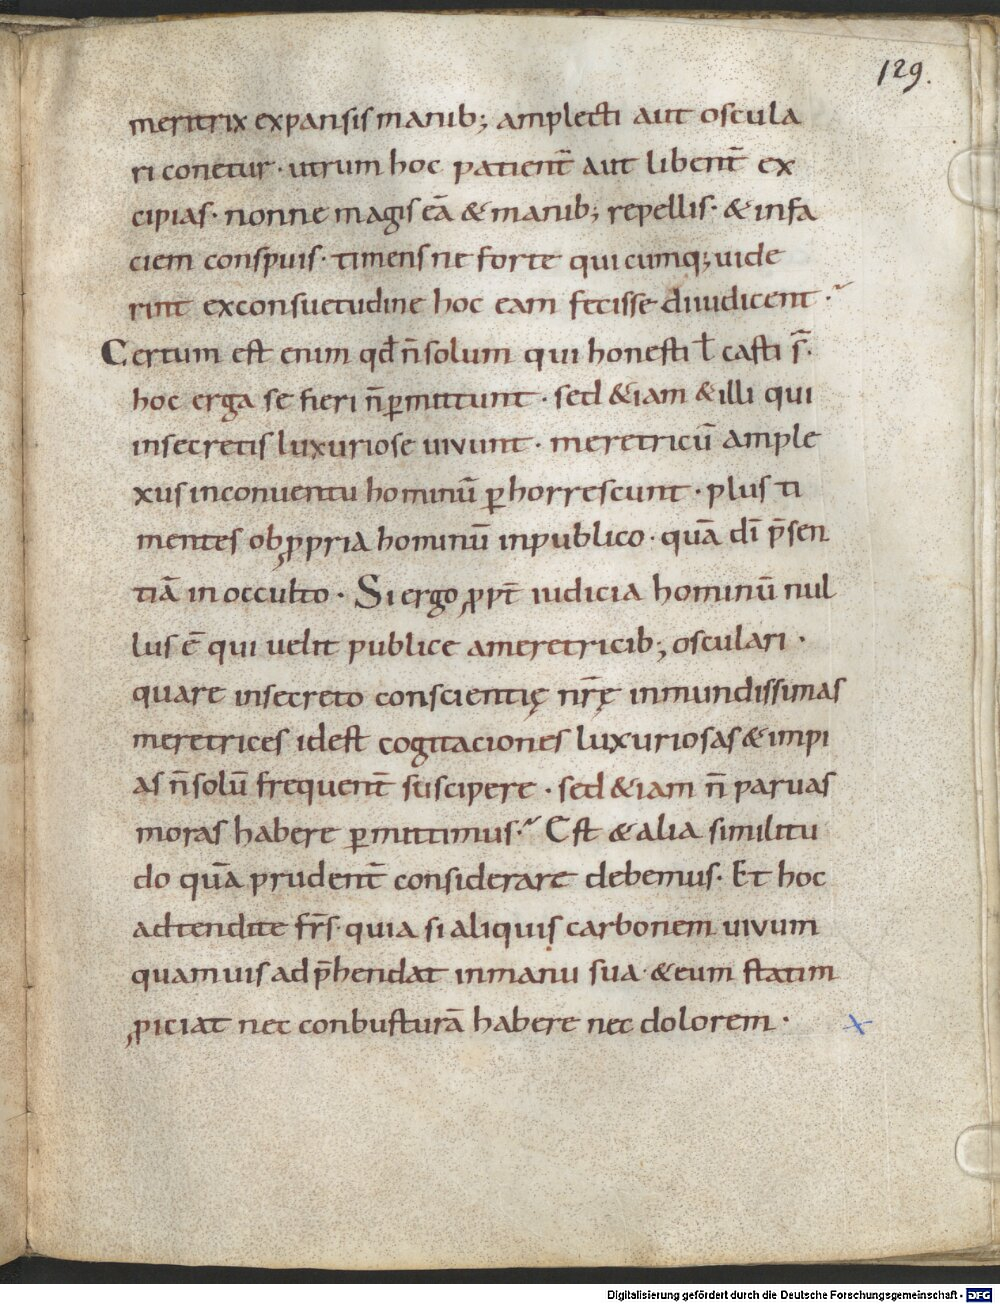 129.
meretrix expansis manib; amplecti aut oscula
ri conetur · utrum hoc patient̄ aut libent̄ ex
cipias · nonne magis eā & manib; repellis · & infa
ciem conspuis · timens ne forte quicumq; uide
rint exconsuetudine hoc eam fecisse diiudicent ·
Certum est enim qđ n̄ solum qui honesti ł casti s̄ ·
hoc erga se fieri n̄ ꝑmittunt · sed &iam & illi qui
insecretis luxuriose uivunt · meretricū ample
xus inconuentu hominū ꝑhorrescunt · plus ti
mentes obꝓpria hominū inpublico · quā dī p̄sen
tiā in occulto · Si ergo ꝓpt̄ iudicia hominū nul
lus ē qui uelit publice ameretricib; osculari ·
quare insecreto conscientię nr̄ę inmundissimas
meretrices idest cogitaciones luxuriosas & impi
as n̄ solū frequent̄ suscipere · sed &iam n̄ paruas
moras habere ꝑmittimus · Est & alia similitu
do quā prudent̄ considerare debemus · Et hoc
adtendite fr̄s · quia si aliquis carbonem uivum
quamuis adp̄hendat inmanu sua · & eum statim
ꝓiciat nec conbusturā habere nec dolorem ·
Digitalisierung gefördert durch die Deutsche Forschungsgemeinschaft - DFG